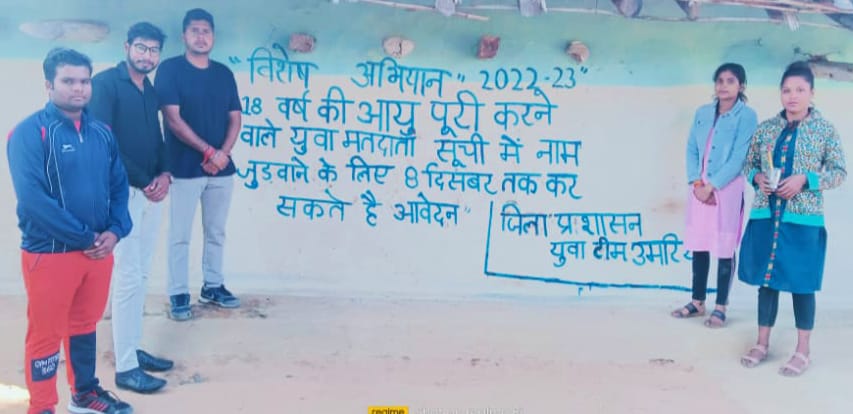 "विशेष अभियान" 2022-23"
18 वर्ष की आयु पूरी करने
वाले युवा मतदाता सूची में नाम
जुड़वाने के लिए 8 दिसंबर तक कर
सकते है आवेदन"
जिला प्रशासन
युवा टीम उमरि
realme